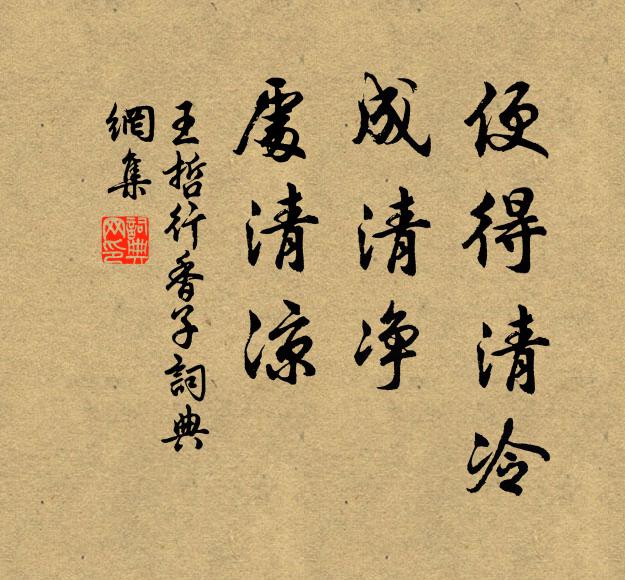 便得清冷
成清净
處清凉
王哲行香子詞典
網集
詞典網印